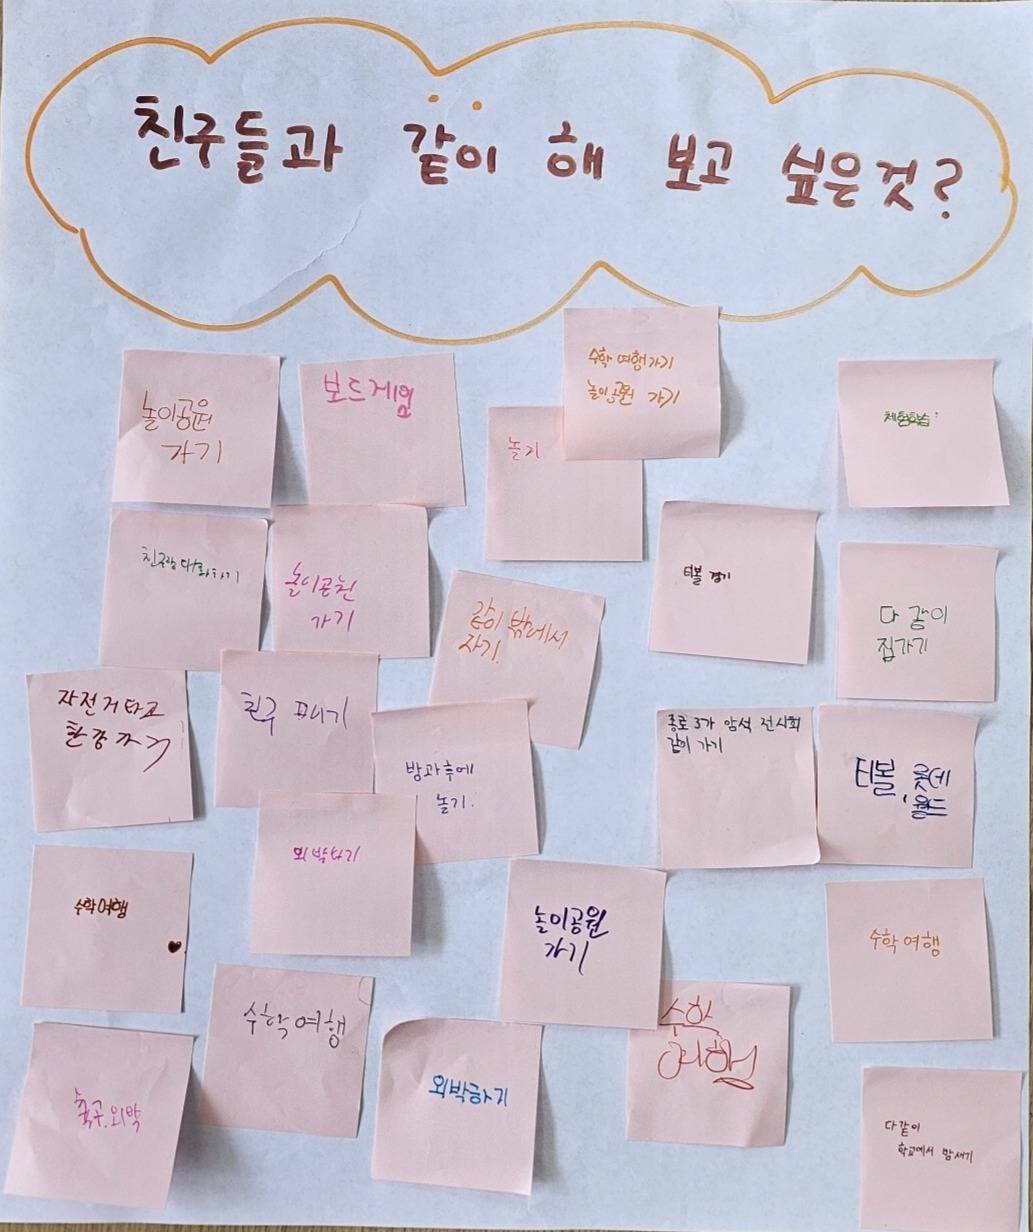 친구들과 같이 해 보고 싶은것?
수학여행가기
놀이공원 가기
놀이공원
가기
보드게임
놀기
체험학습
친구랑 대화하기
놀이공원
가기
같이 밖에서
자기.
티볼 경기
다 같이
집가기
자전거타고
한강가기
친구
방과후에
놀기.
종로 3가 암석 전시회
같이 가기
티볼, 롯데
월드
외박하기
수학여행
놀이공원
가기
수학여행
수학여행
수학
여행
축구, 외박
외박하기
다같이
학교에서 밤새기